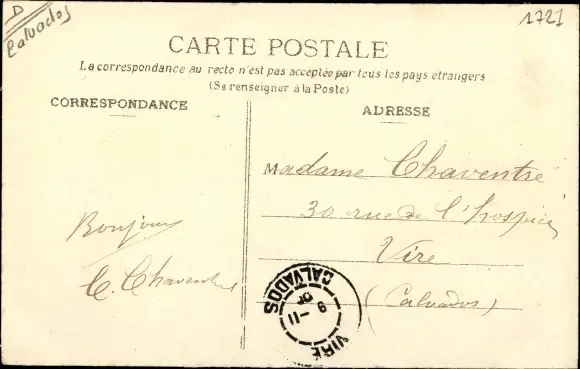 D
Calvados
1721
CARTE POSTALE
La correspondance au recto n'est pas acceptée par tous les pays étrangers
(Se renseigner à la Poste)
CORRESPONDANCE
ADRESSE
Madame Chaventré
30 rue de l'hospice
Vire
(Calvados)
Bonjour
C. Chaventré
VIRE
CALVADOS
9 -11